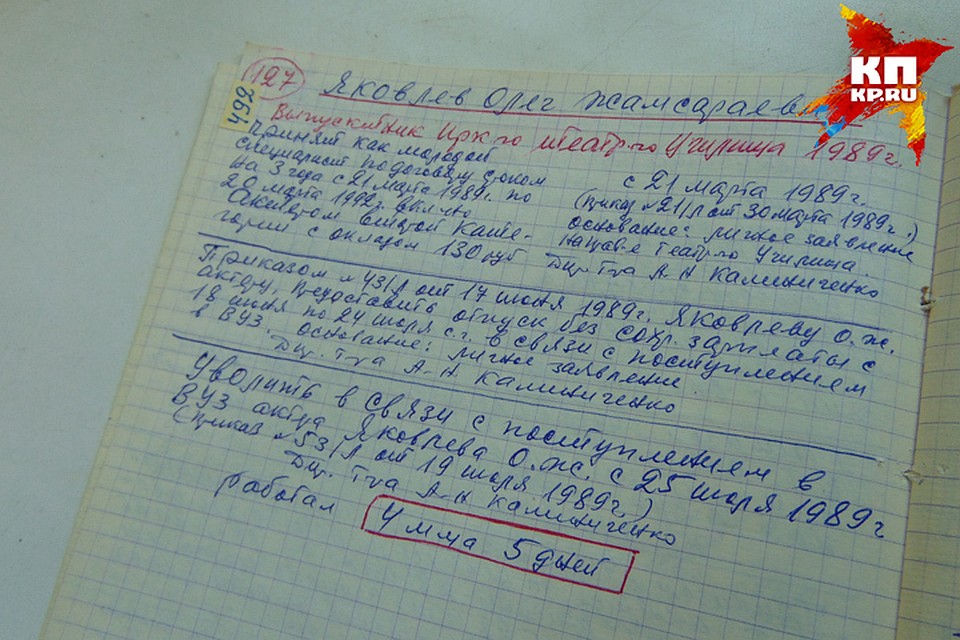 127
492
Яковлев Олег Жамсараев
Выпускник Ирк-го театр-го училища 1989г.
Принят как молодой
специалист по договору сроком
на 3 года с 21 марта 1989г. по
20 марта 1992г. включ-но
Актером второй кате-
гории с окладом 130 руб
с 21 марта 1989г.
(приказ №21/Л от 30 марта 1989г.)
основание: личное заявление
направ-е театр-го училища.
Дир. т-ра А-Н Калиниченко
Приказом №43/Л от 17 июня 1989г. Яковлеву О.Ж.
актеру, предоставить отпуск без сохр. зарплаты с
18 июня по 24 июля с.г. в связи с поступлением
в ВУЗ. основание: личное заявление.
Дир. т-ра А-Н Калиниченко
Уволить в связи с поступлением в
ВУЗ актера Яковлева О.Ж. с 25 июля 1989г
(приказ №53/Л от 19 июля 1989г.)
Дир. т-ра А-Н Калиниченко
работал 4 м-ца 5 дней
КП
KP.RU